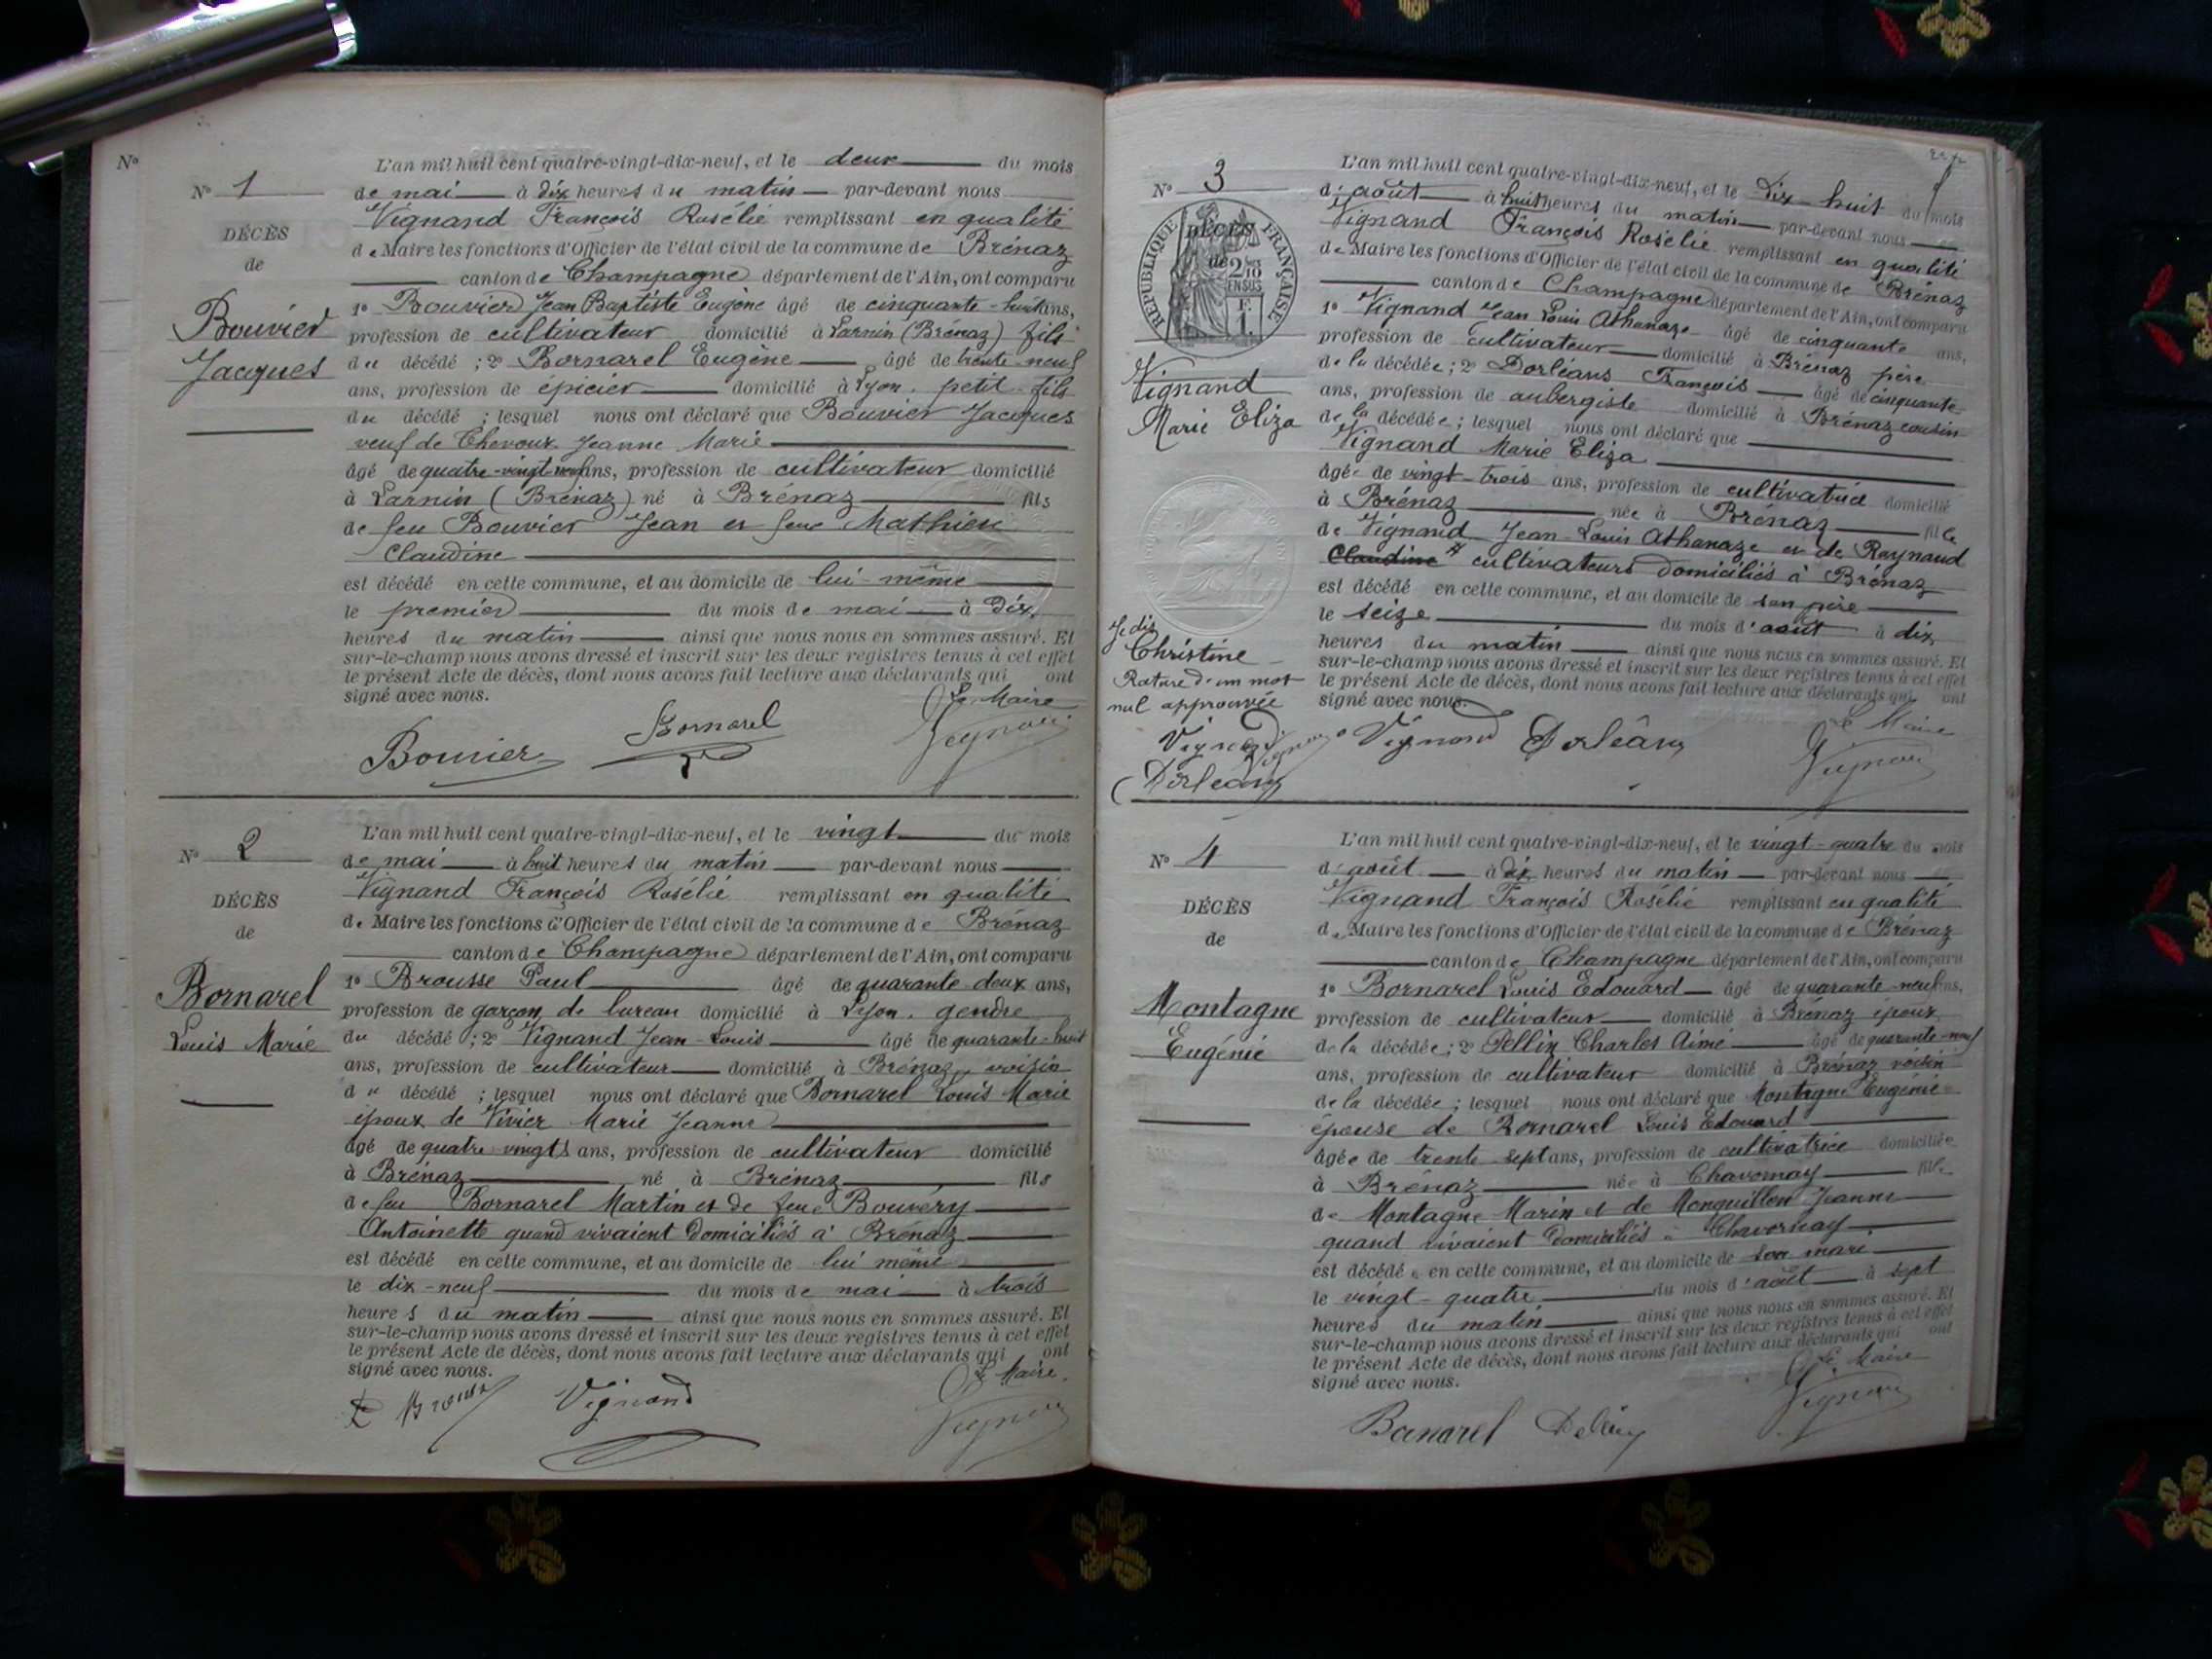 No
No 1
DÉCÈS
de
Bouvier
Jacques
L'an mil huit cent quatre-vingt-dix-neuf, et le deux du mois
de mai à dix heures du matin par-devant nous
Vignand François Rosélie remplissant en qualité
de Maire les fonctions d'Officier de l'état civil de la commune de Brénaz
canton de Champagne département de l'Ain, ont comparu
1o Bouvier Jean Baptiste Eugène âgé de cinquante-huit ans,
profession de cultivateur domicilié à Sarnin (Brénaz) fils
du décédé ; 2o Bornarel Eugène âgé de trente-neuf
ans, profession de épicier domicilié à Lyon. petit-fils
du décédé ; lesquel nous ont déclaré que Bouvier Jacques
veuf de Chevoux Jeanne Marie
âgé de quatre-vingt-neuf ans, profession de cultivateur domicilié
à Sarnin (Brénaz) né à Brénaz fils
de feu Bouvier Jean et feue Mathieu
Claudine
est décédé en cette commune, et au domicile de lui-même
le premier du mois de mai à dix
heures du matin ainsi que nous nous en sommes assuré. Et
sur-le-champ nous avons dressé et inscrit sur les deux registres tenus à cet effet
le présent Acte de décès, dont nous avons fait lecture aux déclarants qui ont
signé avec nous.
Le Maire
Bouvier Bornarel Vignand
No 2
DÉCÈS
de
Bornarel
Louis Marie
L'an mil huit cent quatre-vingt-dix-neuf, et le vingt du mois
de mai à huit heures du matin par-devant nous
Vignand François Rosélie remplissant en qualité
de Maire les fonctions d'Officier de l'état civil de la commune de Brénaz
canton de Champagne département de l'Ain, ont comparu
1o Brousse Paul âgé de quarante deux ans,
profession de garçon de bureau domicilié à Lyon. gendre
du décédé ; 2o Vignand Jean-Louis âgé de quarante-huit
ans, profession de cultivateur domicilié à Brénaz, voisin
du décédé ; lesquel nous ont déclaré que Bornarel Louis Marie
époux de Vivier Marie Jeanne
âgé de quatre vingts ans, profession de cultivateur domicilié
à Brénaz né à Brénaz fils
de feu Bornarel Martin et de feue Bouvéry
Antoinette quand vivaient domiciliés à Brénaz
est décédé en cette commune, et au domicile de lui même
le dix-neuf du mois de mai à trois
heures du matin ainsi que nous nous en sommes assuré. Et
sur-le-champ nous avons dressé et inscrit sur les deux registres tenus à cet effet
le présent Acte de décès, dont nous avons fait lecture aux déclarants qui ont
signé avec nous.
Le Maire.
Brousse Vignand Vignand
No 3
RÉPUBLIQUE FRANÇAISE
DÉCÈS
de
2/10 EN SUS
F. 1.
Vignand
Marie Eliza
Je dis
Christine
Rature d'un mot
nul approuvée
Vignand
Vignand
Dorléans
L'an mil huit cent quatre-vingt-dix-neuf, et le dix-huit du mois
d'août à huit heures du matin par-devant nous
Vignand François Rosélie remplissant en qualité
de Maire les fonctions d'Officier de l'état civil de la commune de Brénaz
canton de Champagne département de l'Ain, ont comparu
1o Vignand Jean Louis Athanaze âgé de cinquante ans,
profession de cultivateur domicilié à Brénaz père
de la décédée ; 2o Dorléans François âgé de cinquante
ans, profession de aubergiste domicilié à Brénaz cousin
de la décédée ; lesquel nous ont déclaré que
Vignand Marie Eliza
âgée de vingt-trois ans, profession de cultivatrice domicilié
à Brénaz née à Brénaz fille
de Vignand Jean-Louis Athanaze et de Raynaud
Claudine cultivateurs domiciliés à Brénaz
est décédé en cette commune, et au domicile de son père
le seize du mois d'août à dix
heures du matin ainsi que nous nous en sommes assuré. Et
sur-le-champ nous avons dressé et inscrit sur les deux registres tenus à cet effet
le présent Acte de décès, dont nous avons fait lecture aux déclarants qui ont
signé avec nous.
Le Maire
Vignand Dorléans Vignand
No 4
DÉCÈS
de
Montagne
Eugénie
L'an mil huit cent quatre-vingt-dix-neuf, et le vingt-quatre du mois
d'août à dix heures du matin par-devant nous
Vignand François Rosélie remplissant en qualité
de Maire les fonctions d'Officier de l'état civil de la commune de Brénaz
canton de Champagne département de l'Ain, ont comparu
1o Bornarel Louis Edouard âgé de quarante-neuf ans,
profession de cultivateur domicilié à Brénaz époux
de la décédée ; 2o Pellin Charles Aimé âgé de quarante-neuf
ans, profession de cultivateur domicilié à Brénaz voisin
de la décédée ; lesquel nous ont déclaré que Montagne Eugénie
épouse de Bornarel Louis Edouard
âgée de trente-sept ans, profession de cultivatrice domiciliée
à Brénaz née à Chavornay fille
de Montagne Marin et de Monguillon Jeanne
quand vivaient domiciliés à Chavornay
est décédée en cette commune, et au domicile de son mari
le vingt-quatre du mois d'août à sept
heures du matin ainsi que nous nous en sommes assuré. Et
sur-le-champ nous avons dressé et inscrit sur les deux registres tenus à cet effet
le présent Acte de décès, dont nous avons fait lecture aux déclarants qui ont
signé avec nous.
Le Maire
Bornarel Vignand